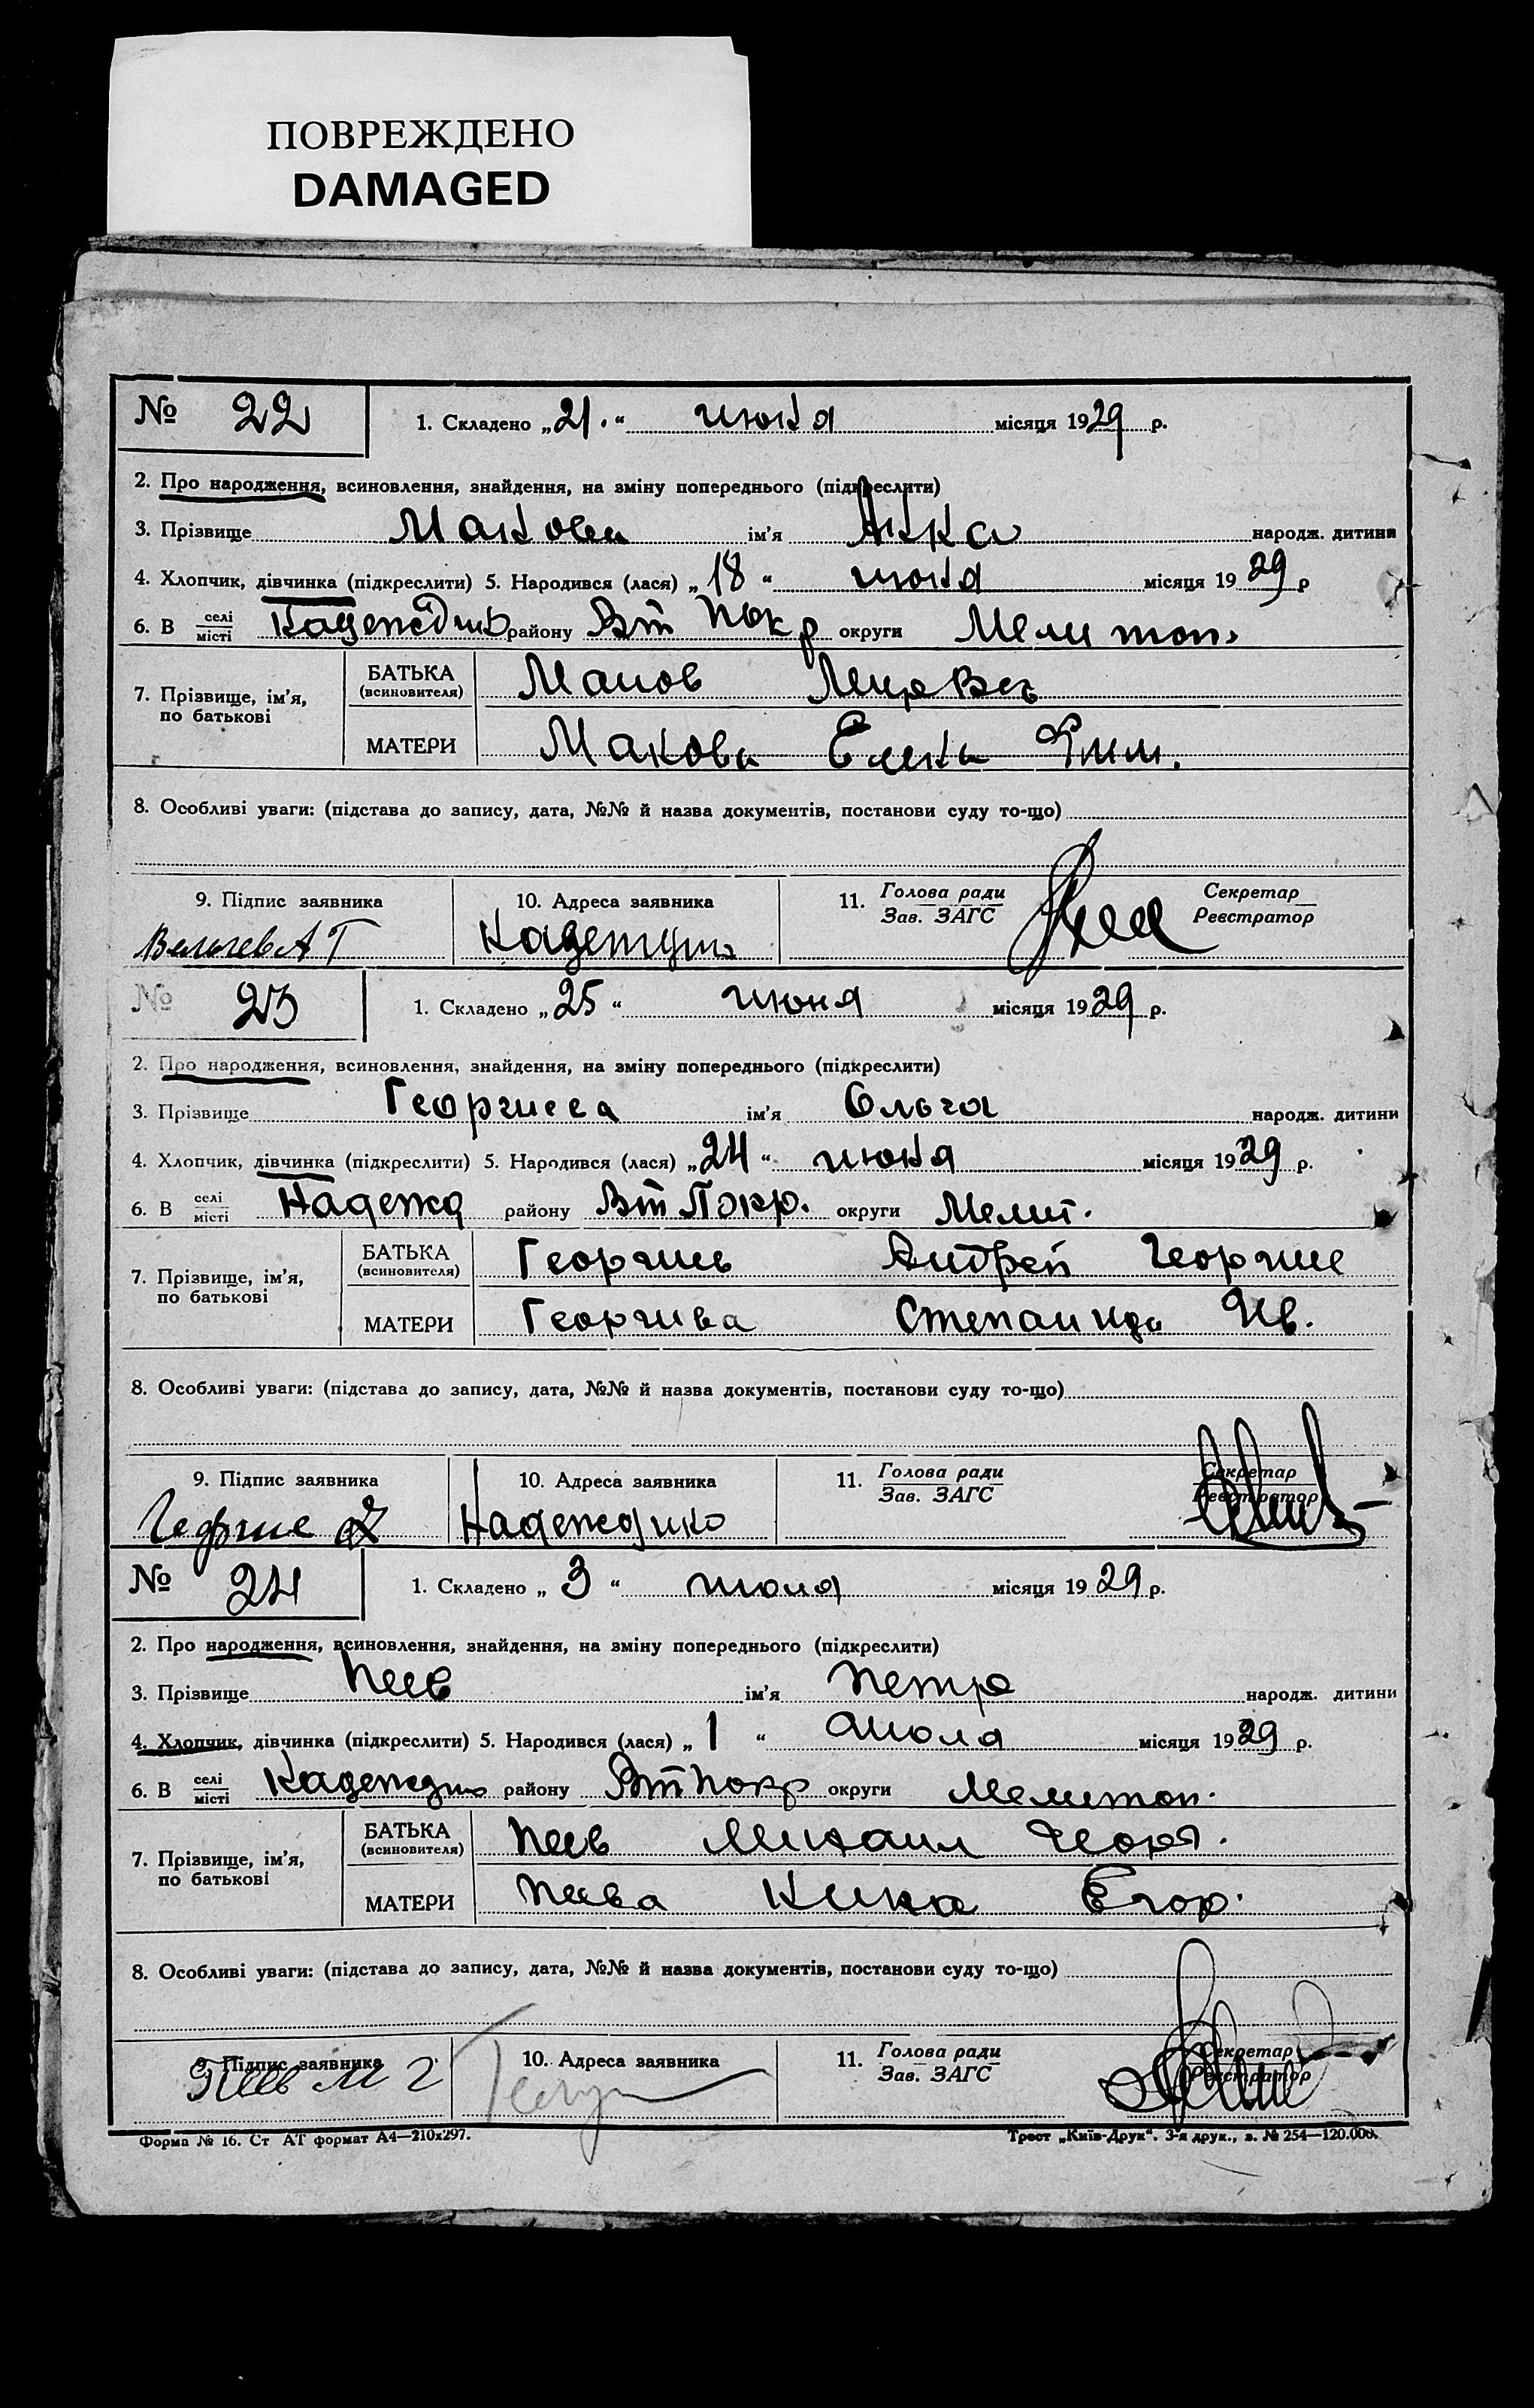 ПОВРЕЖДЕНО
DAMAGED
№ 22
1. Складено „21.“ июня місяця 1929 р.
2. Про народження, всиновлення, знайдення, на зміну попереднього (підкреслити)
3. Прізвище Манова ім’я Анна народж. дитини
4. Хлопчик, дівчинка (підкреслити) 5. Народився (лася) „18“ июня місяця 1929 р
6. В селі/місті Надеждино району Вт Покр округи Мелитоп.
7. Прізвище, ім’я, по батькові
БАТЬКА (всиновителя) Манов
МАТЕРИ Манова Елена
8. Особливі уваги: (підстава до запису, дата, №№ й назва документів, постанови суду то-що)
9. Підпис заявника
10. Адреса заявника
11. Голова ради Зав. ЗАГС
Секретар Реєстратор
№ 23
1. Складено „25“ июня місяця 1929 р.
2. Про народження, всиновлення, знайдення, на зміну попереднього (підкреслити)
3. Прізвище Георгиева ім’я Ольга народж. дитини
4. Хлопчик, дівчинка (підкреслити) 5. Народився (лася) „24“ июня місяця 1929 р.
6. В селі/місті Надежд району Вт Покр. округи Мелит.
7. Прізвище, ім’я, по батькові
БАТЬКА (всиновителя) Георгиев Андрей Георгие
МАТЕРИ Георгива Степанида Ив.
8. Особливі уваги: (підстава до запису, дата, №№ й назва документів, постанови суду то-що)
9. Підпис заявника
10. Адреса заявника
11. Голова ради Зав. ЗАГС
Секретар Реєстратор
Надеждино
№ 24
1. Складено „3“ июля місяця 1929 р.
2. Про народження, всиновлення, знайдення, на зміну попереднього (підкреслити)
3. Прізвище Пеев ім’я Петро народж. дитини
4. Хлопчик, дівчинка (підкреслити) 5. Народився (лася) „1“ июля місяця 1929 р.
6. В селі/місті Надеждино району Вт Покр округи Мелитоп.
7. Прізвище, ім’я, по батькові
БАТЬКА (всиновителя) Пеев Михаил Георг.
МАТЕРИ Пеева Нина Егор.
8. Особливі уваги: (підстава до запису, дата, №№ й назва документів, постанови суду то-що)
9. Підпис заявника
10. Адреса заявника
11. Голова ради Зав. ЗАГС
Секретар Реєстратор
Пеев М Г
Форма № 16. Ст АТ формат А4—210х297.
Трест „Київ-Друк“. 3-я друк., з. № 254—120.000.